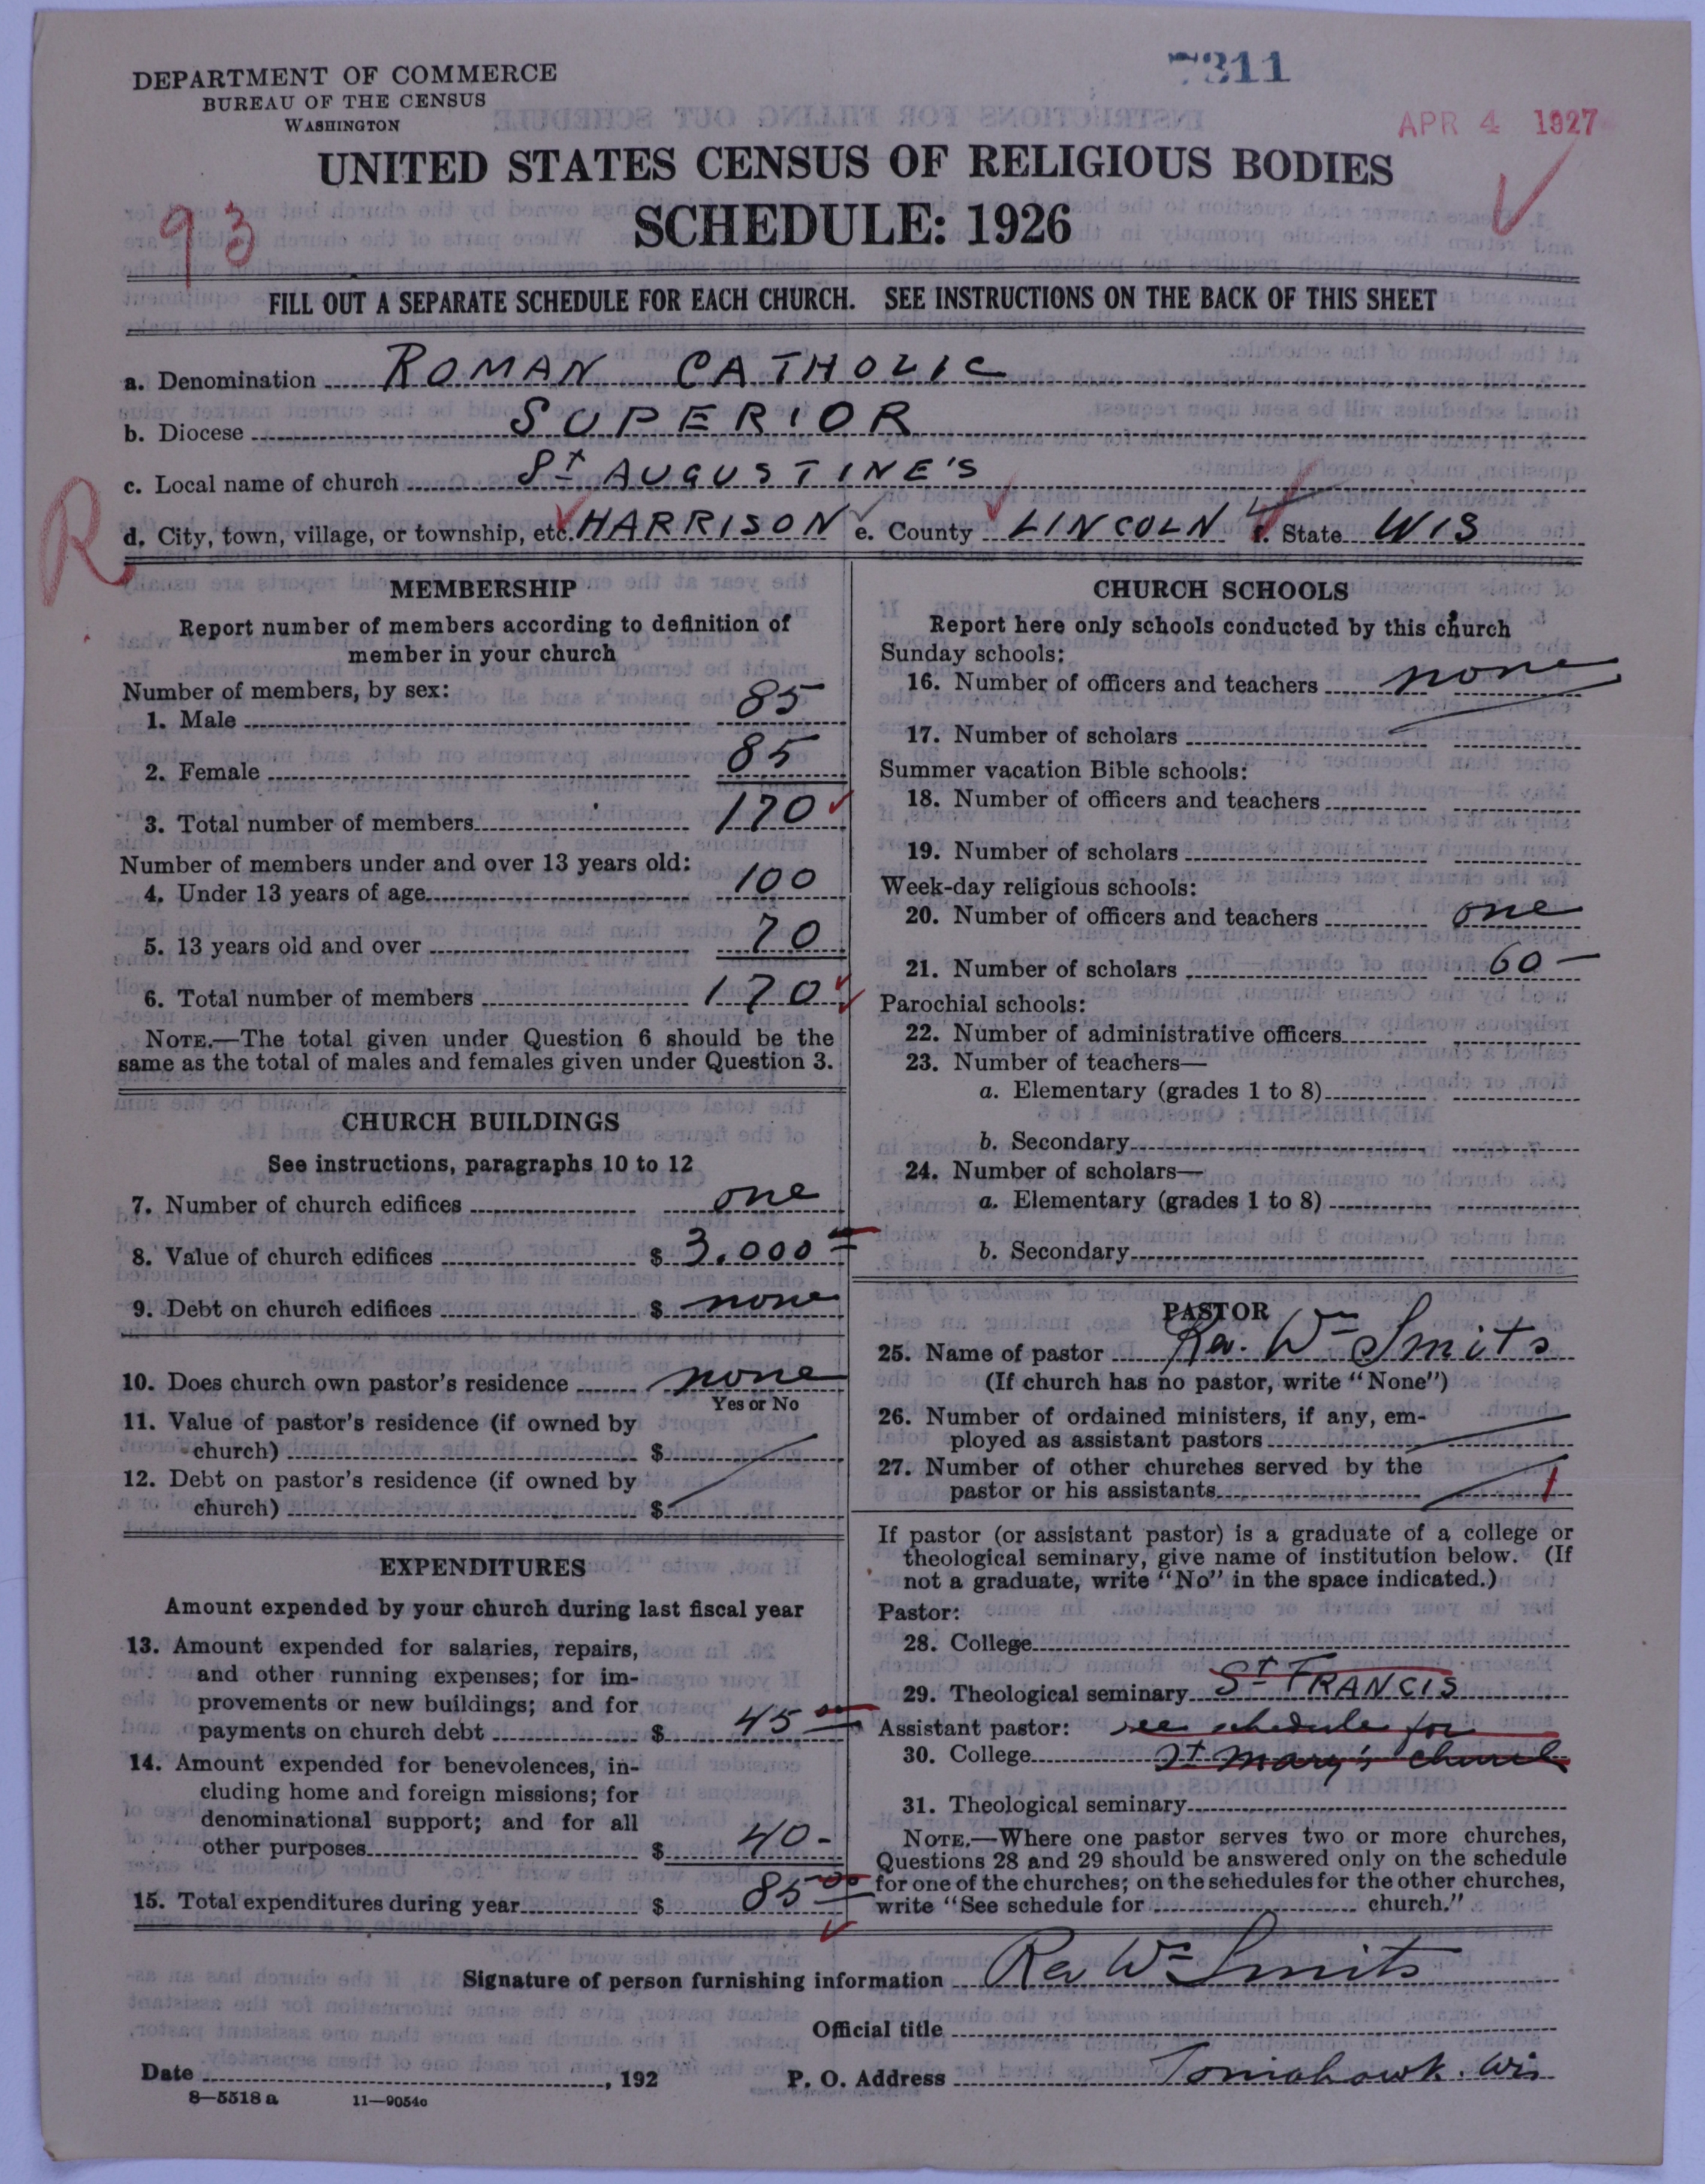 DEPARTMENT OF COMMERCE
BUREAU OF THE CENSUS
WASHINGTON
7311
APR 4 1927
UNITED STATES CENSUS OF RELIGIOUS BODIES
SCHEDULE: 1926
93
FILL OUT A SEPARATE SCHEDULE FOR EACH CHURCH. SEE INSTRUCTIONS ON THE BACK OF THIS SHEET
a. Denomination ROMAN CATHOLIC
b. Diocese SUPERIOR
c. Local name of church St AUGUSTINE'S
R
d. City, town, village, or township, etc. HARRISON e. County LINCOLN f. State WIS
MEMBERSHIP
Report number of members according to definition of
member in your church
Number of members, by sex:
1. Male 85
2. Female 85
3. Total number of members 170
Number of members under and over 13 years old:
4. Under 13 years of age 100
5. 13 years old and over 70
6. Total number of members 170
NOTE.—The total given under Question 6 should be the
same as the total of males and females given under Question 3.
CHURCH BUILDINGS
See instructions, paragraphs 10 to 12
7. Number of church edifices one
8. Value of church edifices $ 3.000
9. Debt on church edifices $ none
10. Does church own pastor's residence none
Yes or No
11. Value of pastor's residence (if owned by
church) $
12. Debt on pastor's residence (if owned by
church) $
EXPENDITURES
Amount expended by your church during last fiscal year
13. Amount expended for salaries, repairs,
and other running expenses; for im-
provements or new buildings; and for
payments on church debt $ 45 00
14. Amount expended for benevolences, in-
cluding home and foreign missions; for
denominational support; and for all
other purposes $ 40-
15. Total expenditures during year $ 85 00
CHURCH SCHOOLS
Report here only schools conducted by this church
Sunday schools:
16. Number of officers and teachers none
17. Number of scholars
Summer vacation Bible schools:
18. Number of officers and teachers
19. Number of scholars
Week-day religious schools:
20. Number of officers and teachers one
21. Number of scholars 60 -
Parochial schools:
22. Number of administrative officers
23. Number of teachers—
a. Elementary (grades 1 to 8)
b. Secondary
24. Number of scholars—
a. Elementary (grades 1 to 8)
b. Secondary
PASTOR
25. Name of pastor Rev. Wm Smits
(If church has no pastor, write "None")
26. Number of ordained ministers, if any, em-
ployed as assistant pastors
27. Number of other churches served by the
pastor or his assistants 1
If pastor (or assistant pastor) is a graduate of a college or
theological seminary, give name of institution below. (If
not a graduate, write "No" in the space indicated.)
Pastor:
28. College
29. Theological seminary St FRANCIS
Assistant pastor: see schedule for
30. College St Mary's church
31. Theological seminary
NOTE.—Where one pastor serves two or more churches,
Questions 28 and 29 should be answered only on the schedule
for one of the churches; on the schedules for the other churches,
write "See schedule for church."
Signature of person furnishing information Rev Wm Smits
Official title
Date , 192 P. O. Address Tomahawk. Wis
8—5518 a 11—9054c